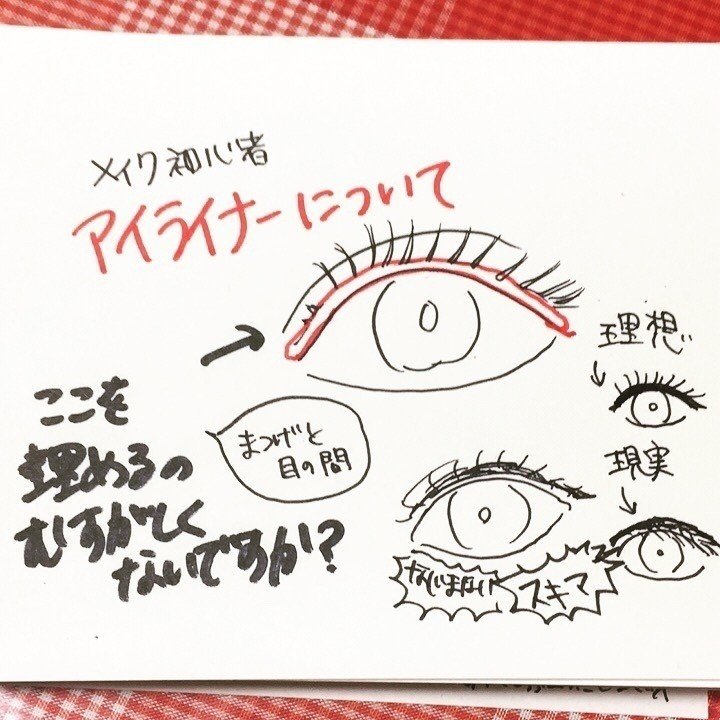 メイク初心者
アイライナーについて
理想
ここを
埋めるの
むずがしく
ないですか?
まつげと
目の間
現実
なじまない
スキマ